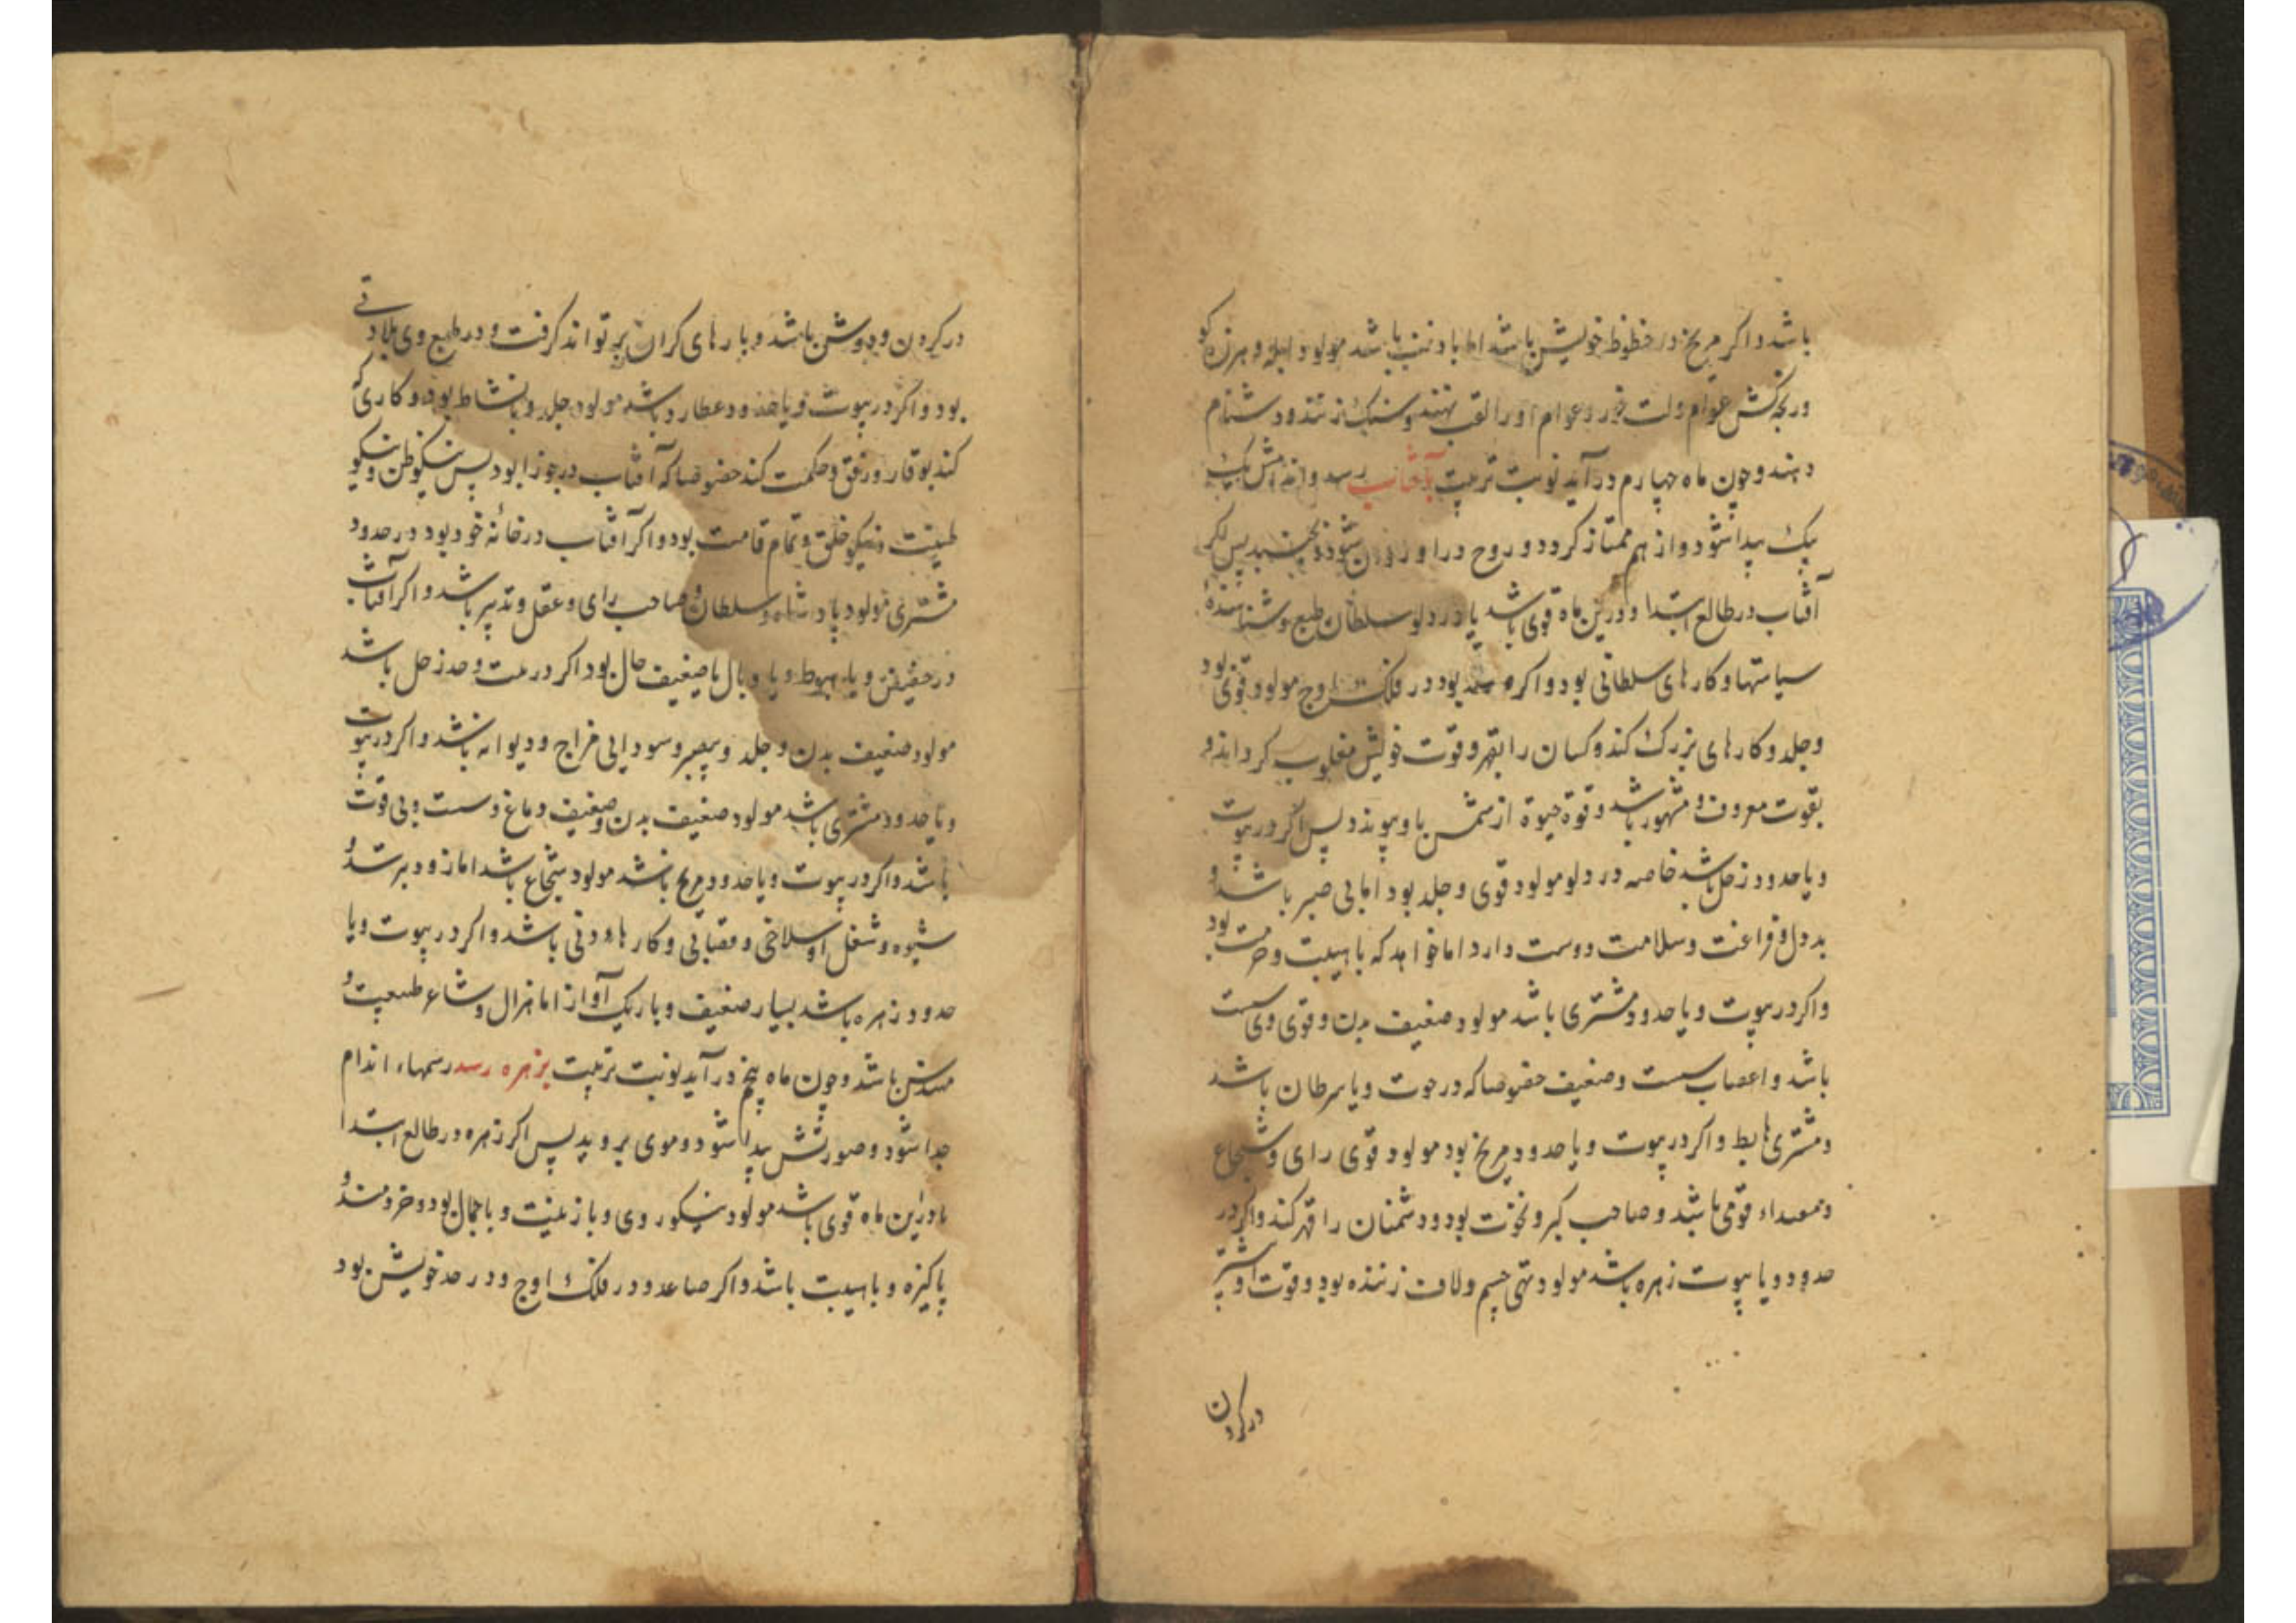 باشد و اکر مریخ در حظوظ خویش باشد اما با ذنب باشد مولود ابله و هرزه کو
و رنجه کش عوام ولت خورد و عوام او را لقب نهند و سنک زنند و دشنام
دهند و چون ماه چهارم در آید نوبت تربیت بآفتاب رسد و اندامش یک
یک پیدا شود و از هم ممتاز کردد و روح در او روان شود و بجنبد پس اکر
آفتاب در طالع ابتدا و درین ماه قوی باشد یا در دلو سلطان طبع و شناسنده
سیاستها و کارهای سلطانی بود و اکر صاعد بود در فلک اوج مولود قوی بود
و جلد و کارهای بزرک کند و کسان را بقهر و قوت خویش مغلوب کرداند و
بقوت معروف و مشهور باشد و قوة حیوة از شمس باو پیوندد پس اکر در بیوت
و یا حدود زحل باشد خاصه در دلو مولود قوی و جلد بود اما بی صبر باشد و
بد دل و فراغت و سلامت دوست دارد اما خواهد که با هیبت و حرمت بود
و اکر در بیوت و یا حدود مشتری باشد مولود ضعیف بدن و قوی وی سست
باشد و اعصاب سست و ضعیف خصوصا که در حوت و یا سرطان باشد
و مشتری هابط و اکر در بیوت و یا حدود مریخ بود مولود قوی رای و شجاع
و قوی باشد و صاحب کبر و نخوت بود و دشمنان را قهر کند و اکر در
حدود و یا بیوت زهره باشد مولود تهی چشم و لاف زننده بود و قوت او بیشتر
در کردن
در کردن و دوش باشد و بارهای کران بر تواند کرفت و در طبع وی بلادتی
بود و اکر در بیوت و یا حدود عطارد باشد مولود جلد و با نشاط بود و کاری که
کند بوقار و رفق و حکمت کند خصوصا که آفتاب در جوزا بود پس نیکو ظن و نیکو
طینت و نیکو خلق و تمام قامت بود و اکر آفتاب در خانه خود بود در حدود
مشتری مولود پادشاه و سلطان و صاحب رای و عقل و تدبیر باشد و اکر آفتاب
در حضیض و یا هبوط و یا وبال یا ضعیف حال بود اکر در بیت و حد زحل باشد
مولود ضعیف بدن و جلد و بیصبر و سودایی مزاج و دیوانه باشد و اکر در بیوت
و یا حدود مشتری باشد مولود ضعیف بدن و ضعیف دماغ و سست و بی قوت
باشد و اکر در بیوت و یا حدود مریخ باشد مولود شجاع باشد اما زود برسد و
شیوه و شغل او سلاخی و قصابی و کارهاء دنی باشد و اکر در بیوت و یا
حدود زهره باشد بسیار ضعیف و باریک آواز اما هزال و شاعر طبیعت و
باشد و چون ماه پنجم در آید نوبت تربیت بزهره رسد رسمهاء اندام
جدا شود و صورتش پیدا شود و موی بروید پس اکر زهره در طالع ابتدا
یا درین ماه قوی باشد مولود نیکو روی و با زینت و با جمال بود و خردمند و
پاکیزه و با هیبت باشد و اکر صاعد در فلک اوج و در حد خویش بود